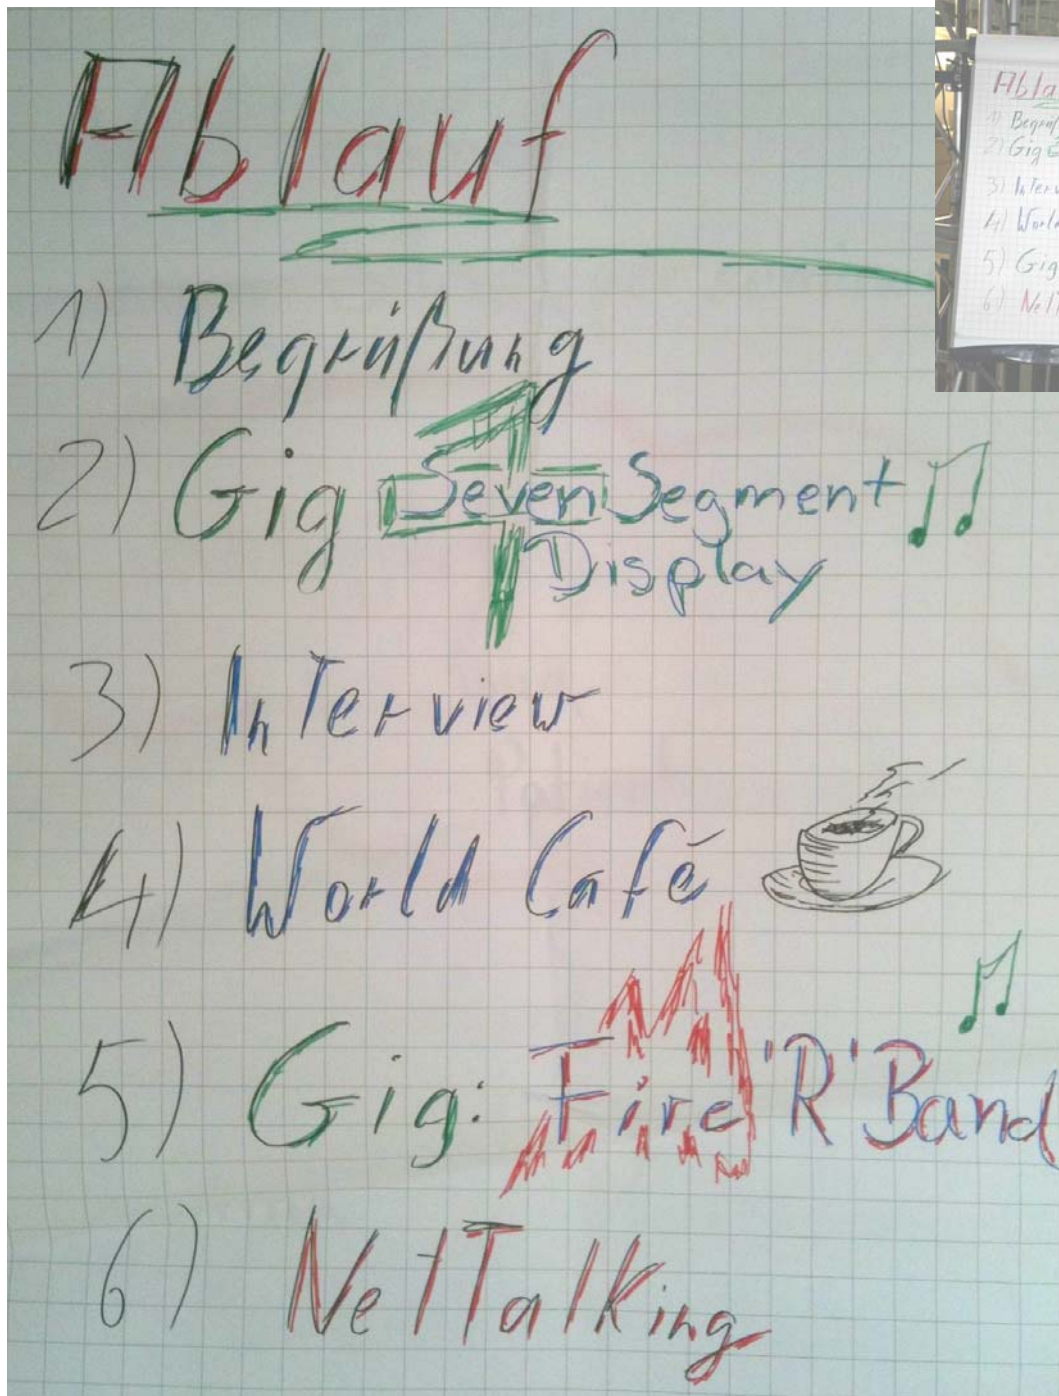 Ablauf
1) Begrüßung
2) Gig Seven Segment
Display
3) Interview
4) World Café
5) Gig: Fire 'R' Band
6) NetTalking
Abla
1) Begrüß
2) Gig
3) Interv
4) World
5) Gig
6) NetT